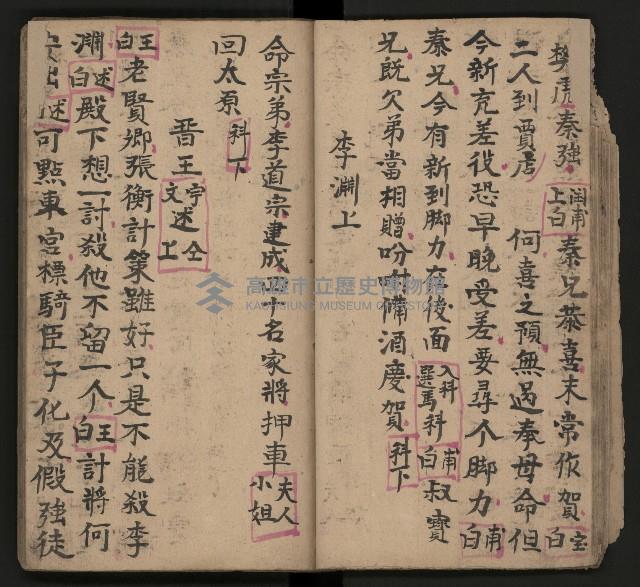 樊虎秦強
二人到賈店
閏甫上白 秦兄恭喜未常作賀 宝白
何喜之預無過奉母命但
今新充差役恐早晚受差要尋个脚力 甫白
秦兄今有新到脚力在後面 入科選馬科 甫白 叔寶
兄既欠弟當相贈吩咐備酒慶賀 科下
李淵上
命宗弟李道宗建成 名家將押車 夫人小姐
回太原 科下
晋王 宇文述 仝上
王白 老賢卿張衡計策雖好只是不能殺李
淵 述白 殿下想一討殺他不留一个 王白 計將何
出 述 可點東宮標騎臣子化及假強徒
高雄市立歷史博物館
KAOHSIUNG MUSEUM OF HISTORY